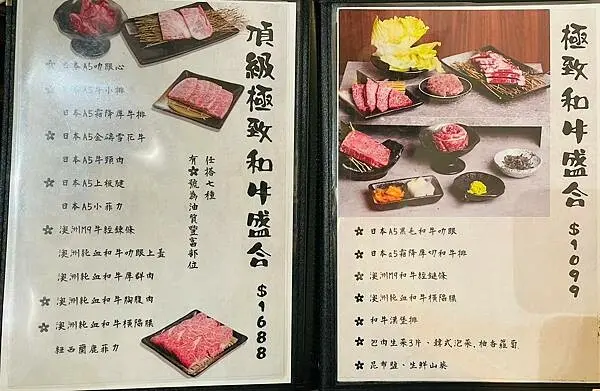 頂級極致和牛盛合 $1688
任搭七種
有✽號為油質豐富部位
✽ 日本A5肋眼心
日本A5牛小排
日本A5霜降厚牛排
✽ 日本A5金磚雪花牛
日本A5牛頸肉
✽ 日本A5上板腱
日本A5小菲力
✽ 澳洲M9牛輕鍊條
澳洲純血和牛肋眼上蓋
澳洲純血和牛厚鮮肉
✽ 澳洲純血和牛胸腹肉
✽ 澳洲純血和牛橫隔膜
紐西蘭鹿菲力
極致和牛盛合 $1099
✽ 日本A5黑毛和牛肋眼
✽ 日本a5霜降厚切和牛排
✽ 澳洲M9和牛輕鏈條
✽ 澳洲純血和牛橫隔膜
✽ 和牛漢堡排
✽ 包肉生菜3片、韓式泡菜、柚香蘿蔔
✽ 昆布鹽、生鮮山葵